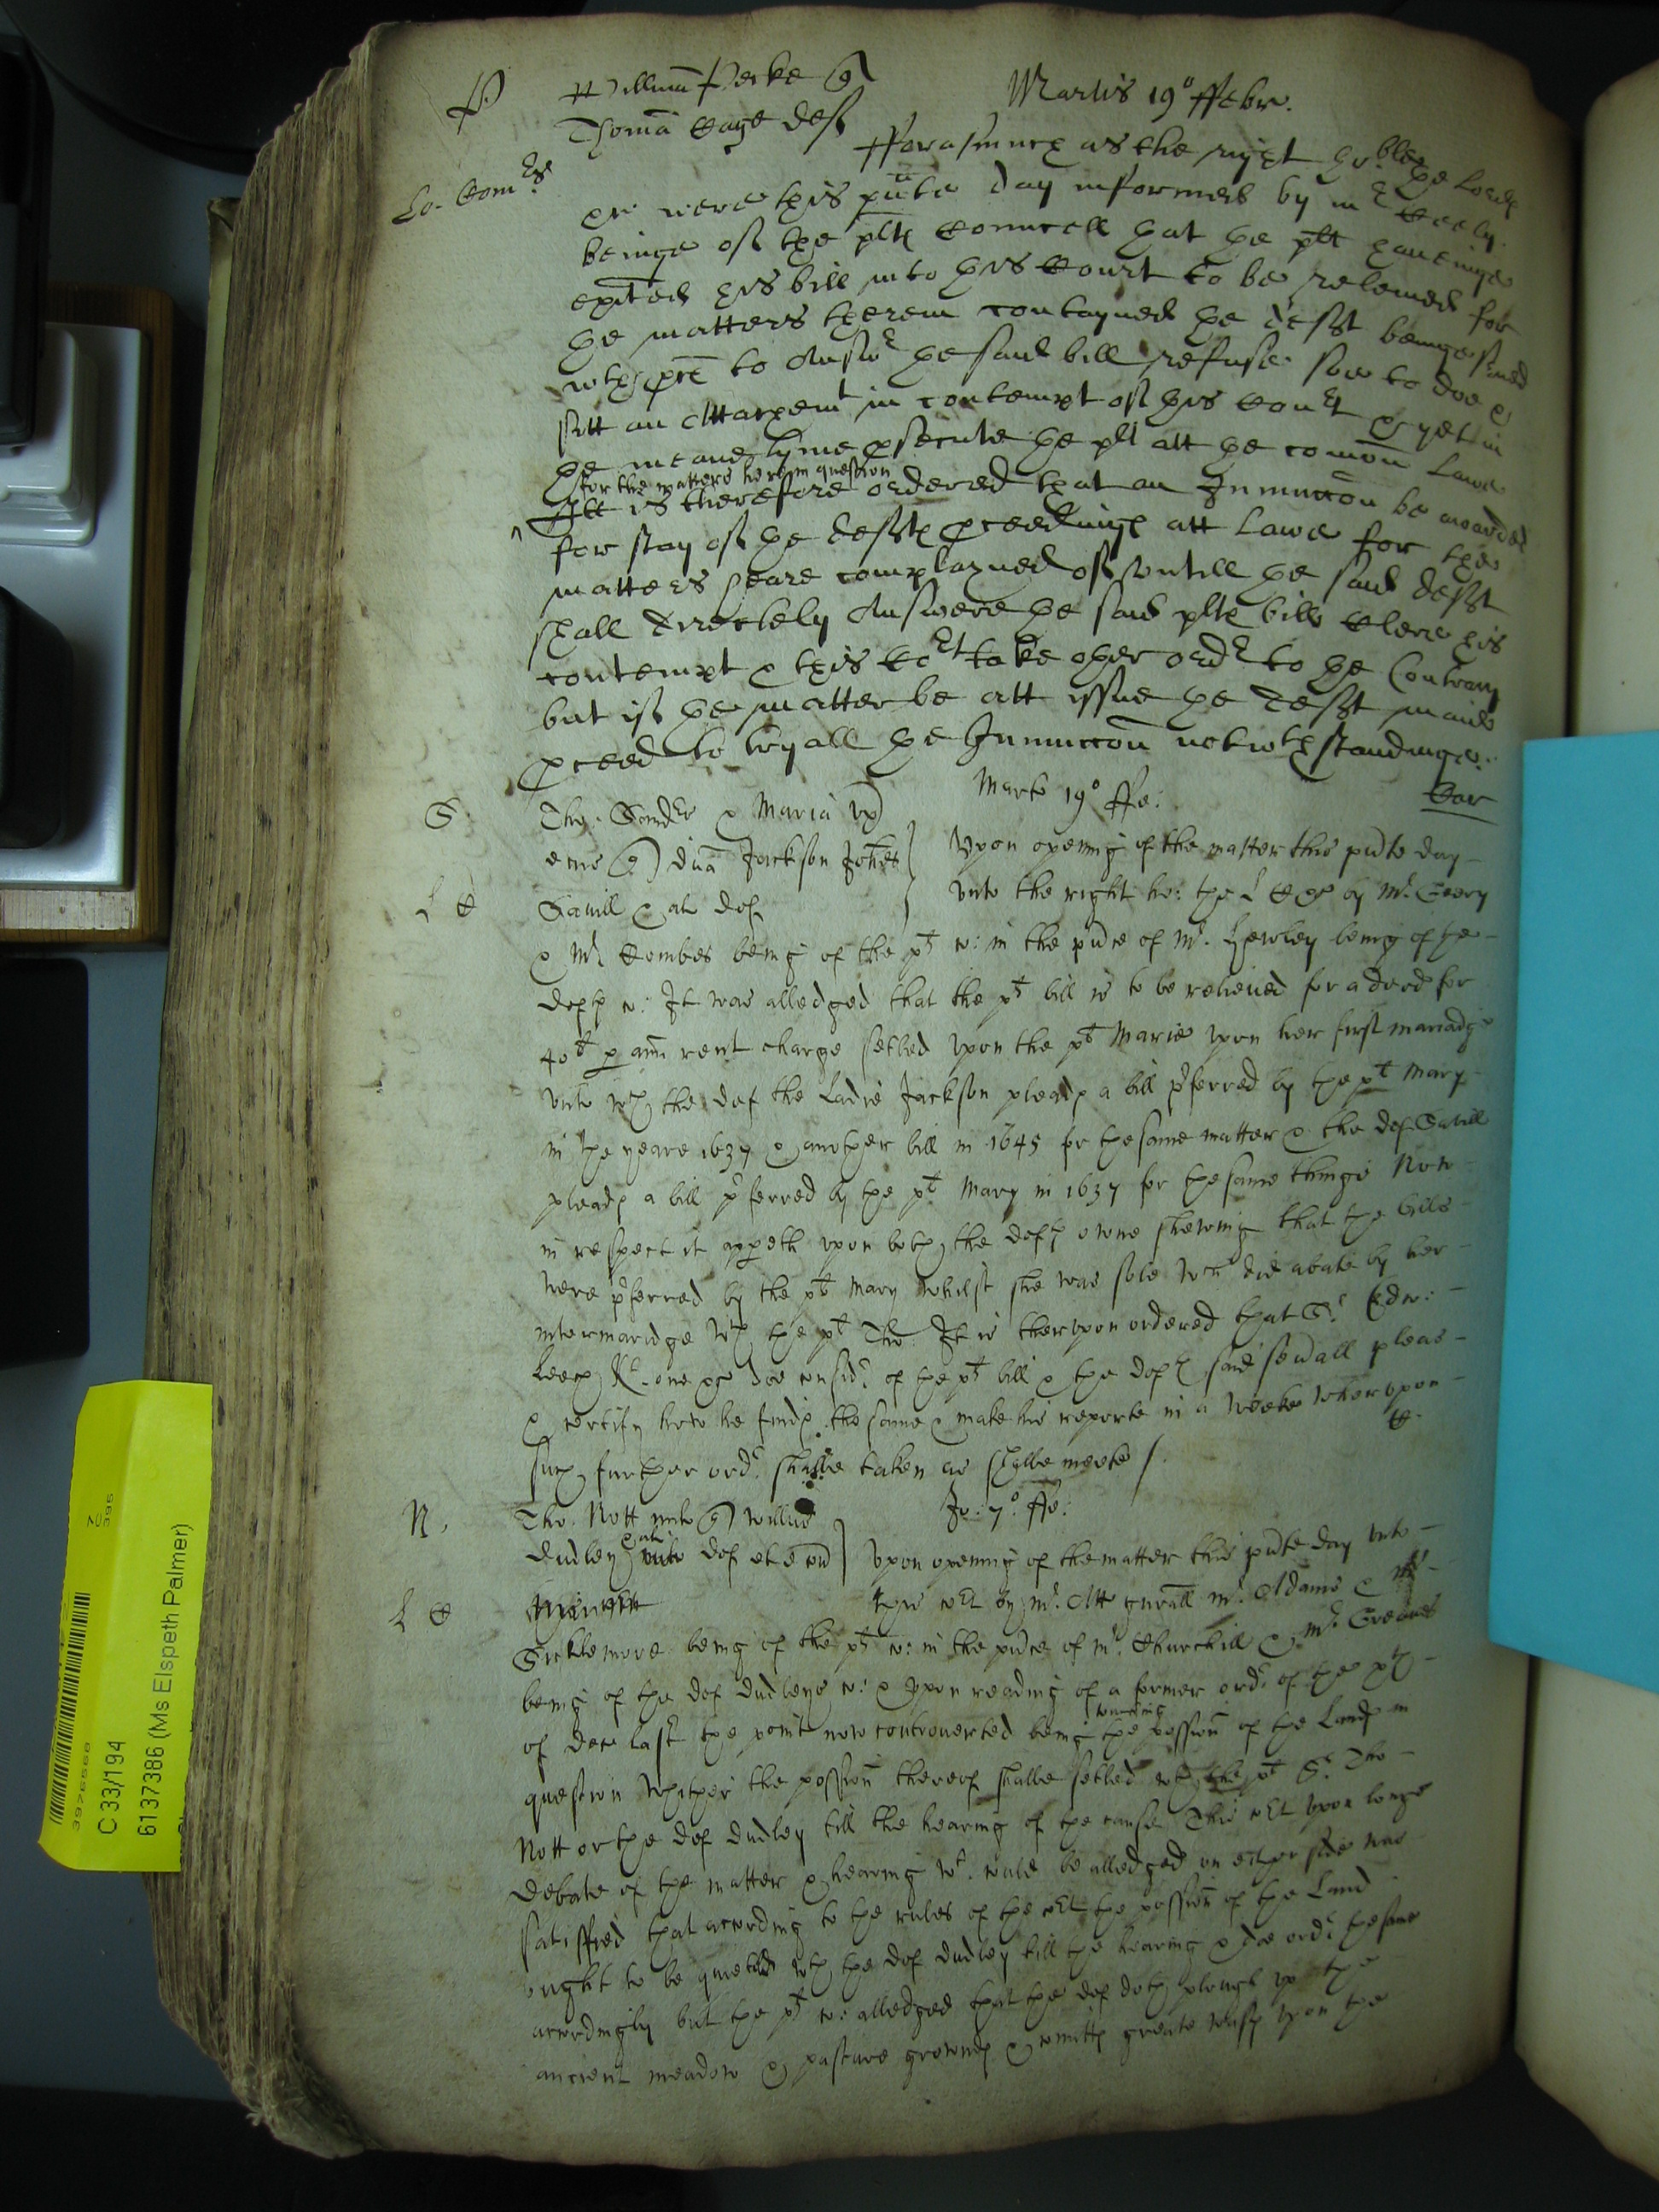 P Willmū Peike q
Martis 19° Febr.
Thomā Cage def
Lo. Com^rs
Fforasmuch as the right ho:ble the Lords
&c were this pñte day informed by m^r
beinge of the plts Councell that the plt haveinge
exħited his bill into this Court to be releived for
the matters therein contayned the defft beinge s̄ved
w^th p̱ces to Answ^r the said bill refuses soe to doe &
sitt an Attachem^t in contempt of this Co^rt & yet in
the meane tyme p̱secute the plt att the comōn Lawe
for the matters here in question
Itt is therefore ordered that an Iniunccōn be awarded
for stay of the deffts p̱ceedings att Lawe for the
matters heare complayned of untill the said defft
shall directely Answere the said plts bill cleere his
contempt & this Co^rt take other ord^r to the Contrary
but if the matter be att issue the defft maie
p̱ceed to tryall the Iniunccōn notw^thstandinge.
Martis 19° ffe:
S Tho: & Maria ux
eius q duā Jackson Johēs
Upon opening of the matter this pñte day
L C Savill & al def
unto the right ho: the L C^rs by M^r Geery
& M^r Combes being of the pt c: in the pñce of M^r. Hewley being of the
defts c: It was alledged that the pt bill is to be releived for a deed for
40^l p̱ anñ rent charge setled upon the pt Marie upon her first mariadge
unto w^ch the def the Ladie Jackson pleads a bill p̱ferred by the pt Mary
in the yeare 1637 & another bill in 1645 for the same matter & the def Savill
pleads a bill p̱ferred by the pt Mary in 1637 for the same things Now
in respect it appeth upon both the defts owne shewing that the bills
were p̱ferred by the pt Mary whilst she was sole w^ch did abate by her
intermaridge w^th the pt Tho: It is therupon ordered that S^r Edw:
Leech K^t one &c doe consid^r of the pt bill & the defts said sev̄all pleas
& certify how he finds the same & make his reporte in a weeke wherupon
such further ord^r shalbe taken as shalbe meete /.
N. Tho. Nott q Willūs
Jo: 7° ffe:
Dudley & al def et e con̄
Upon opening of the matter this pñte day unto
L C
this c^rt by m^r. Att gnrall m^r. Adams & m^r
Sicklemore being of the pts c: in the pñce of m^r. Churchill & m^r. Greaves
being of the def Dudleys c: & upon reading of a former ord^r of the
of dec last the point now controverted being touching the possion of the Lands in
question whither the possion thereof shalbe setled w^th the pt S^r. Tho
Nott or the def Dudley till the hearing of the cause This c^rt upon longe
debate of the matter & hearing w^t. could be alledged on either side was
satiffied that according to the rules of the c^rt the possion of the Land
ought to be quieted w^th the def Dudley till the hearing & doe ord^r the same
accordingly but the pt c: alledged that the def doth plough up the
ancient meadow & pasture grownds & comitts greate wast upon the
3976568
C 33/194
6137386 (Ms Elspeth Palmer)